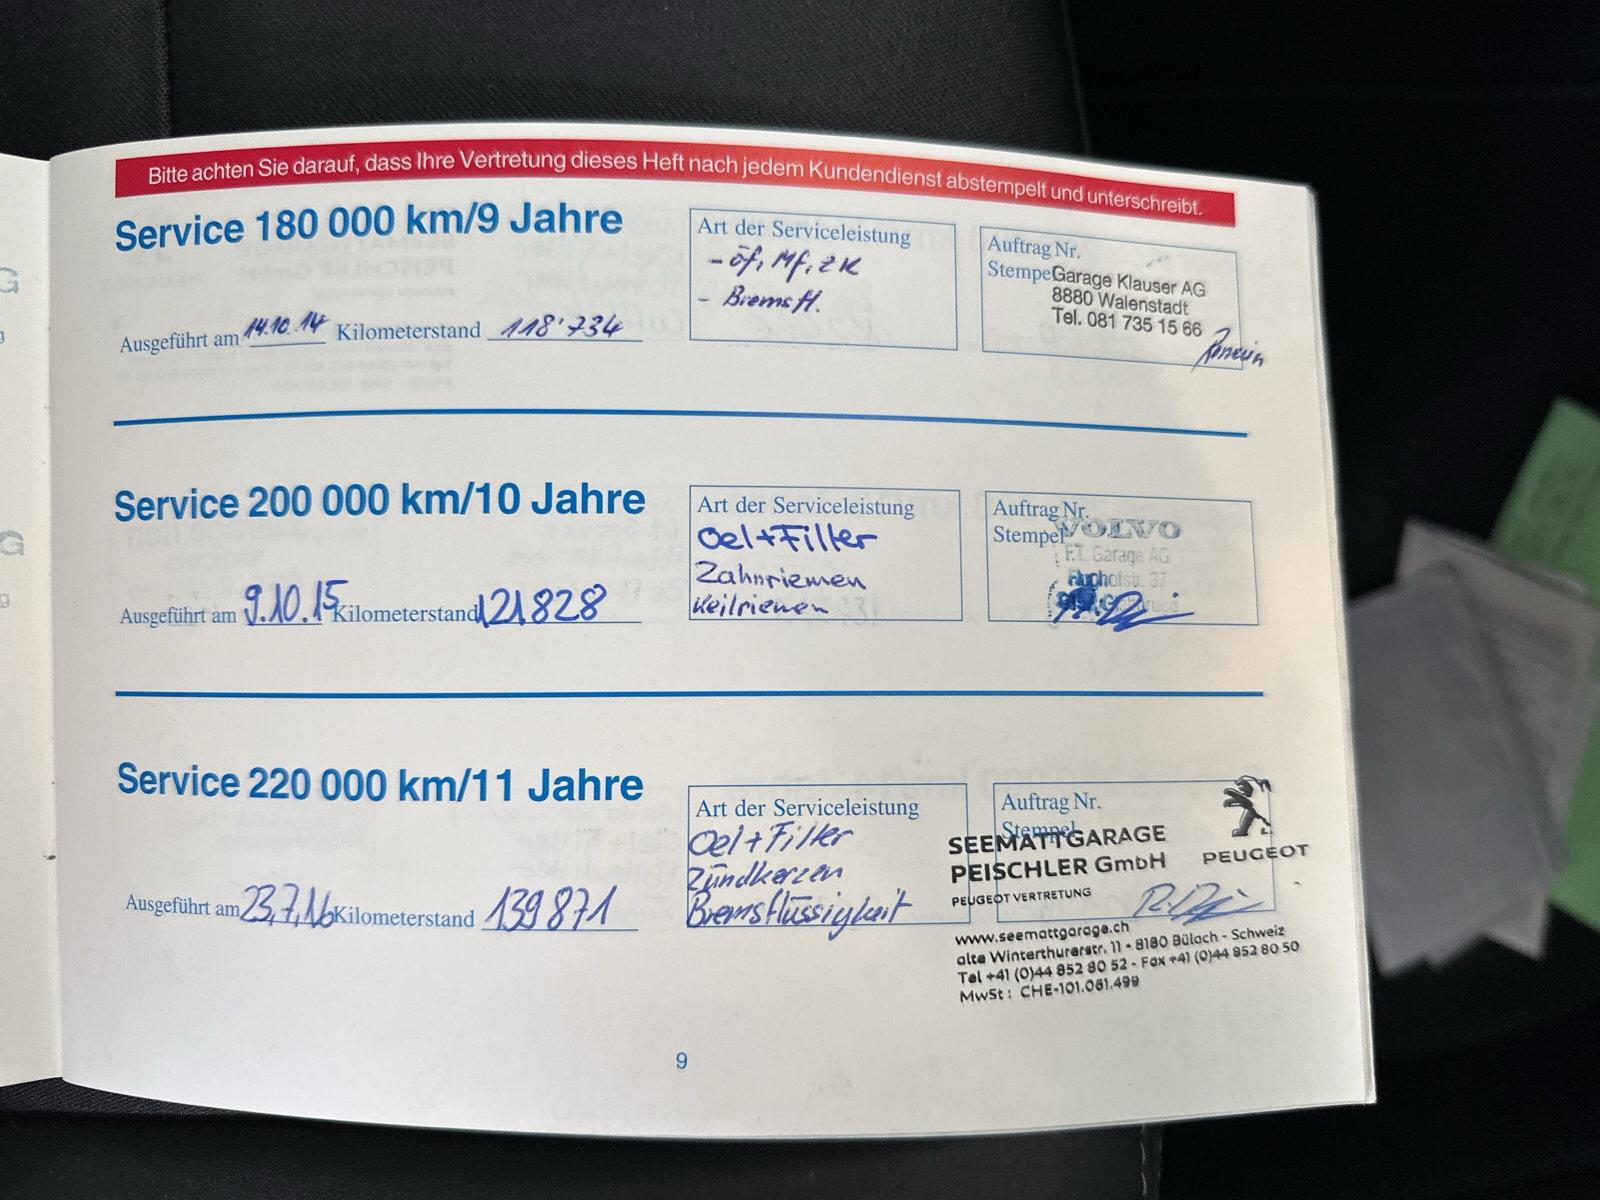 Bitte achten Sie darauf, dass Ihre Vertretung dieses Heft nach jedem Kundendienst abstempelt und unterschreibt.
Service 180 000 km/9 Jahre
Ausgeführt am 14.10.14 Kilometerstand 118'734
Art der Serviceleistung
- öf, Mf, ZK
- Bremsfl.
Auftrag Nr.
Stempel
Garage Klauser AG
8880 Walenstadt
Tel. 081 735 15 66
Service 200 000 km/10 Jahre
Ausgeführt am 9.10.15 Kilometerstand 121828
Art der Serviceleistung
Oel+Filter
Zahnriemen
Keilriemen
Auftrag Nr.
Stempel
VOLVO
F.T. Garage AG
37
Service 220 000 km/11 Jahre
Ausgeführt am 23.7.16 Kilometerstand 139871
Art der Serviceleistung
Oel+Filter
Zündkerzen
Bremsflüssigkeit
Auftrag Nr.
Stempel
SEEMATTGARAGE
PEISCHLER GmbH
PEUGEOT VERTRETUNG
PEUGEOT
www.seemattgarage.ch
alte Winterthurerstr. 11 - 8180 Bülach - Schweiz
Tel +41 (0)44 852 80 52 - Fax +41 (0)44 852 80 50
MwSt : CHE-101.061.499
9